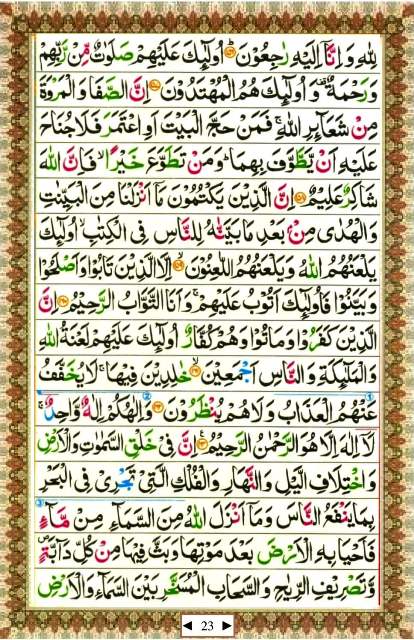 لِلّٰهِ وَ اِنَّاۤ اِلَیْهِ رٰجِعُوْنَؕ﴿۱۵۶﴾ اُولٰٓىِٕكَ عَلَیْهِمْ صَلَوٰتٌ مِّنْ رَّبِّهِمْ
وَ رَحْمَةٌ ۫ وَ اُولٰٓىِٕكَ هُمُ الْمُهْتَدُوْنَ﴿۱۵۷﴾ اِنَّ الصَّفَا وَ الْمَرْوَةَ
مِنْ شَعَآىِٕرِ اللّٰهِ ۚ فَمَنْ حَجَّ الْبَیْتَ اَوِ اعْتَمَرَ فَلَا جُنَاحَ
عَلَیْهِ اَنْ یَّطَّوَّفَ بِهِمَا ؕ وَ مَنْ تَطَوَّعَ خَیْرًا ۙ فَاِنَّ اللّٰهَ
شَاكِرٌ عَلِیْمٌ﴿۱۵۸﴾ اِنَّ الَّذِیْنَ یَكْتُمُوْنَ مَاۤ اَنْزَلْنَا مِنَ الْبَیِّنٰتِ
وَ الْهُدٰی مِنْۢ بَعْدِ مَا بَیَّنّٰهُ لِلنَّاسِ فِی الْكِتٰبِ ۙ اُولٰٓىِٕكَ
یَلْعَنُهُمُ اللّٰهُ وَ یَلْعَنُهُمُ اللّٰعِنُوْنَ﴿۱۵۹﴾ اِلَّا الَّذِیْنَ تَابُوْا وَ اَصْلَحُوْا
وَ بَیَّنُوْا فَاُولٰٓىِٕكَ اَتُوْبُ عَلَیْهِمْ ۚ وَ اَنَا التَّوَّابُ الرَّحِیْمُ﴿۱۶۰﴾ اِنَّ
الَّذِیْنَ كَفَرُوْا وَ مَاتُوْا وَ هُمْ كُفَّارٌ اُولٰٓىِٕكَ عَلَیْهِمْ لَعْنَةُ اللّٰهِ
وَ الْمَلٰٓىِٕكَةِ وَ النَّاسِ اَجْمَعِیْنَ﴿۱۶۱﴾ خٰلِدِیْنَ فِیْهَا ۚ لَا یُخَفَّفُ
عَنْهُمُ الْعَذَابُ وَ لَا هُمْ یُنْظَرُوْنَ﴿۱۶۲﴾ وَ اِلٰهُكُمْ اِلٰهٌ وَّاحِدٌ ۚ
لَاۤ اِلٰهَ اِلَّا هُوَ الرَّحْمٰنُ الرَّحِیْمُ﴿۱۶۳﴾ اِنَّ فِیْ خَلْقِ السَّمٰوٰتِ وَ الْاَرْضِ
وَ اخْتِلَافِ الَّیْلِ وَ النَّهَارِ وَ الْفُلْكِ الَّتِیْ تَجْرِیْ فِی الْبَحْرِ
بِمَا یَنْفَعُ النَّاسَ وَ مَاۤ اَنْزَلَ اللّٰهُ مِنَ السَّمَآءِ مِنْ مَّآءٍ
فَاَحْیَا بِهِ الْاَرْضَ بَعْدَ مَوْتِهَا وَ بَثَّ فِیْهَا مِنْ كُلِّ دَآبَّةٍ ۪
وَّ تَصْرِیْفِ الرِّیٰحِ وَ السَّحَابِ الْمُسَخَّرِ بَیْنَ السَّمَآءِ وَ الْاَرْضِ
◄ 23 ►